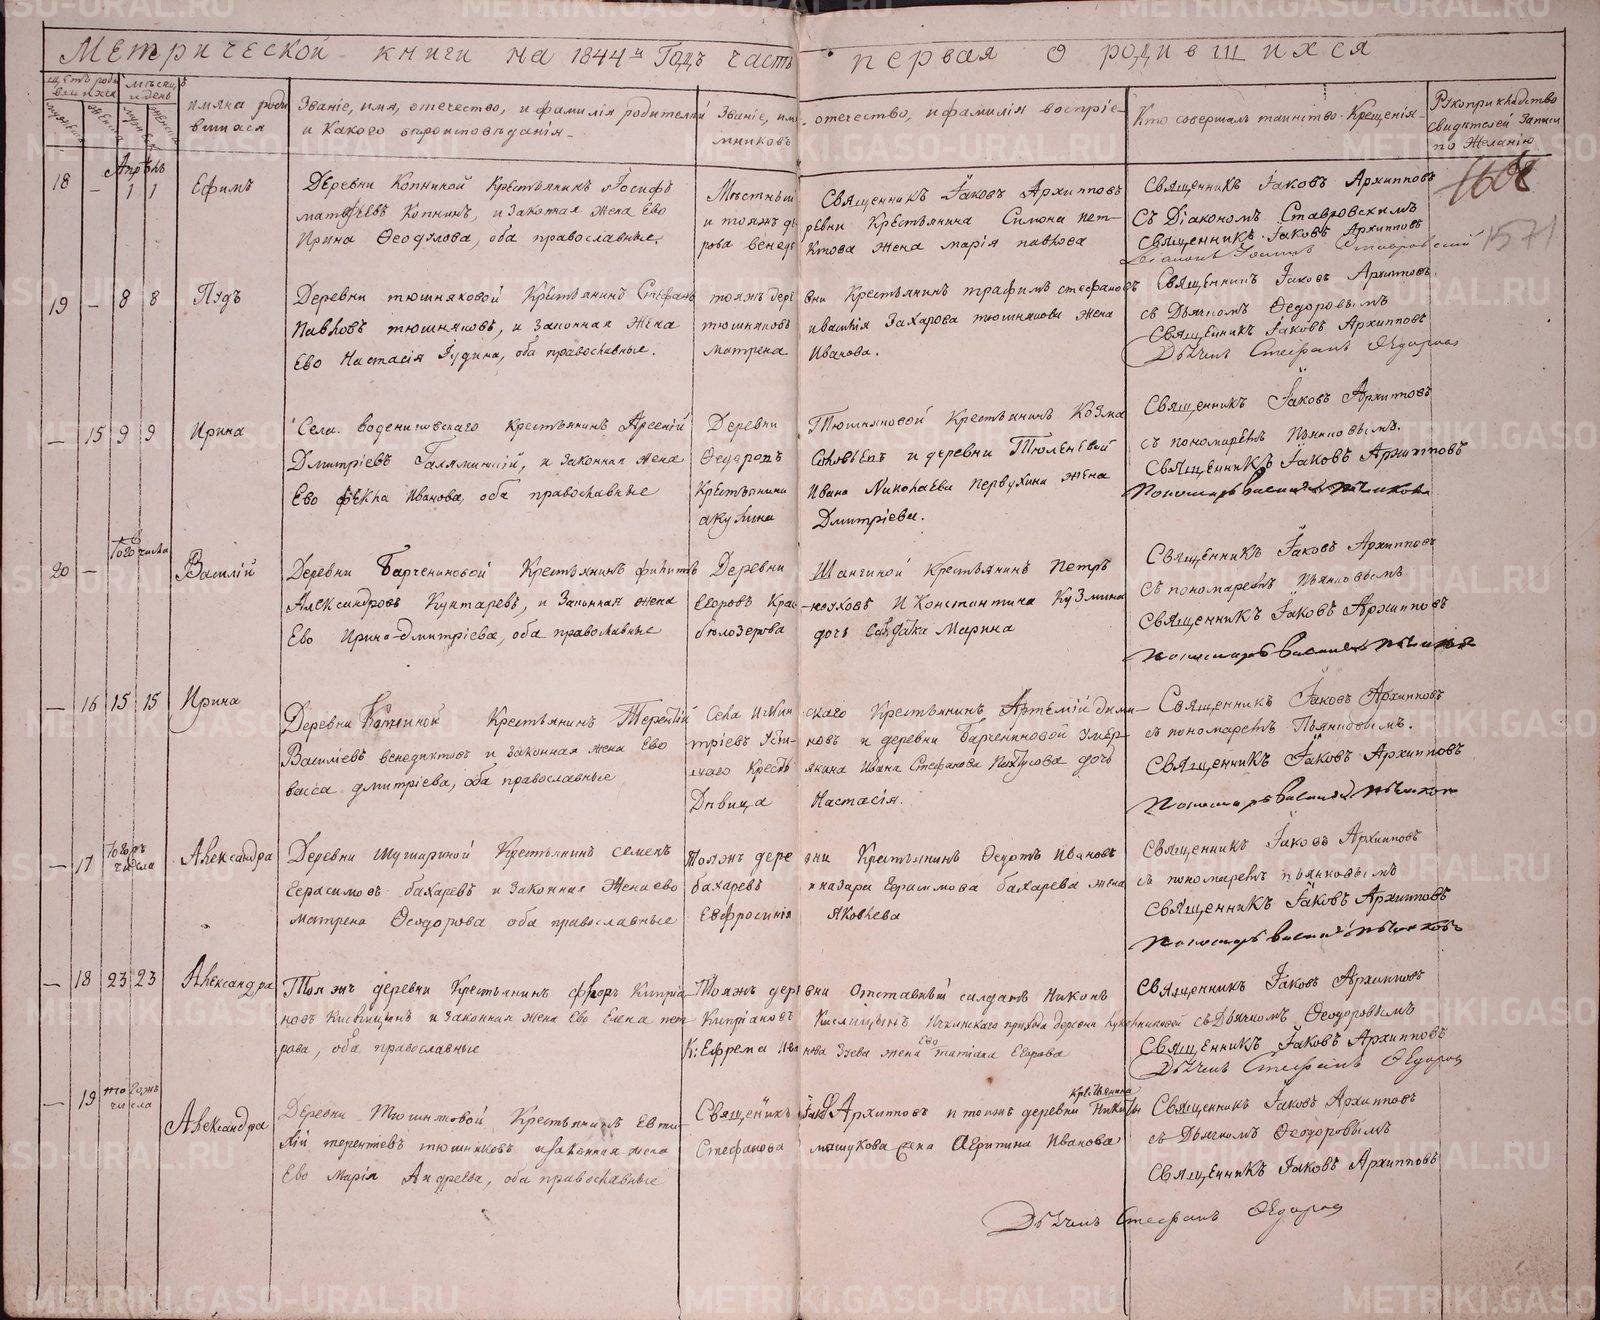 Метрической книги на 1844й Годъ часть первая о родившихся
имяна роди
вшихся
Званіе, имя, отечество, и фамилія родителей
и Какого вѣроисповѣданія
Званіе, имя
отечество, и фамилія воспріе-
мниковъ
Кто совершалъ таинство Крещенія
Рукоприкладство
свидѣтелей Записи
по Желанію
Апрѣль
18 — 1 1 Ефимъ
Деревни Копниной Крестьянинъ Іосифъ
Матфеевъ Копнинъ, и Законная Жена Его
Ирина Ѳеодулова, оба православные.
Мѣстный Священникъ Іаковъ Архипповъ
и тояжъ деревни Крестьянина Симона Пет-
рова жена Марія Павлова
Священникъ Іаковъ Архипповъ
Съ Діакономъ Ставровскимъ
Священникъ Іаковъ Архипповъ
1571
19 — 8 8 Пудъ
Деревни тюшняковой Крестьянинъ Стефанъ
Павловъ тюшняковъ, и Законная Жена
Его Настасія Іудина, оба православные.
тояжъ деревни Крестьянинъ трафимъ стефановъ
тюшняковъ и василія Захарова тюшнякова Жена
Матрена Иванова.
Священникъ Іаковъ Архипповъ
съ Дьячкомъ Ѳедоровымъ
Священникъ Іаковъ Архипповъ
Дьячекъ Стефанъ Ѳедоровъ
— 15 9 9 Ирина
Села воденниковскаго Крестьянинъ Арсеній
Дмитріевъ Галяминскій, и Законная жена
Его Ѳекла Иванова, оба православные
Деревни Тюшняковой Крестьянинъ Козма
Соловьевъ и деревни Тюленевой
Крестьянина Ивана Николаева Первухина жена
акулина Дмитріева.
Священникъ Іаковъ Архиповъ
съ пономаремъ Пьянковымъ.
Священникъ Іаковъ Архипповъ
Пономарь Василій Пьянковъ
20 — Того числа Василій
Деревни Барчениновой Крестьянинъ филиппъ
Александровъ Кунтаревъ, и Законная жена
Его Ирина Дмитріева, оба православные
Деревни Шангиной Крестьянинъ Петръ
Егоровъ Красноуховъ и Константина Кузмина
бѣлозерова дочь Солдатка Марина
Священникъ Іаковъ Архипповъ
съ пономаремъ Пьянковымъ
Священникъ Іаковъ Архипповъ
Пономарь Василій Пьянковъ
— 16 15 15 Ирина
Деревни Копниной Крестьянинъ Терентій
Василіевъ венедиктовъ и Законная жена Его
васса Дмитріева, оба православные
Села Ичкинскаго Крестьянинъ Артемій Дими-
тріевъ и деревни Барчениновой
Ивана Стефанова дочь
Дѣвица Настасія.
Священникъ Іаковъ Архипповъ
съ пономаремъ Пьянковымъ.
Священникъ Іаковъ Архипповъ
Пономарь Василій Пьянковъ
— 17 Того жъ числа Александра
Деревни Шушариной Крестьянинъ семенъ
Герасимовъ бахаревъ и Законная Жена его
матрена Ѳеодорова оба православные
Тояжъ деревни Крестьянинъ Ѳедотъ Ивановъ
бахаревъ и назара Герасимова бахарева жена
Евфросинія Яковлева
Священникъ Іаковъ Архипповъ
съ пономаремъ пьянковымъ
Священникъ Іаковъ Архипповъ
Пономарь Василій Пьянковъ
— 18 23 23 Александра
Тояжъ деревни Крестьянинъ флоръ Кипріа-
новъ Кислицынъ и Законная жена Его Елена пет-
рова, оба православные
Тояжъ деревни Отставный салдатъ Никонъ
Кипріановъ Кислицынъ Ичкинскаго прихода деревни
К: Ефрема Зуева жена Его татіана Егорова
Священникъ Іаковъ Архипповъ
съ Дьячкомъ Ѳеодоровымъ
Священникъ Іаковъ Архипповъ
Дьячекъ Стефанъ Ѳедоровъ
— 19 того жъ числа Александра
Деревни Тюшняковой Крестьянинъ Евти-
хій терентіевъ тюшняковъ и законная жена
Его Марія Андреева, оба православные
Священникъ Іаковъ Архипповъ и тояжъ деревни Крестьянина Никиты
Стефанова машукова жена Агрипина Иванова
Священникъ Іаковъ Архипповъ
съ Дьячкомъ Ѳеодоровымъ
Священникъ Іаковъ Архипповъ
Дьячекъ Стефанъ Ѳедоровъ
METRIKI.GASO-URAL.RU